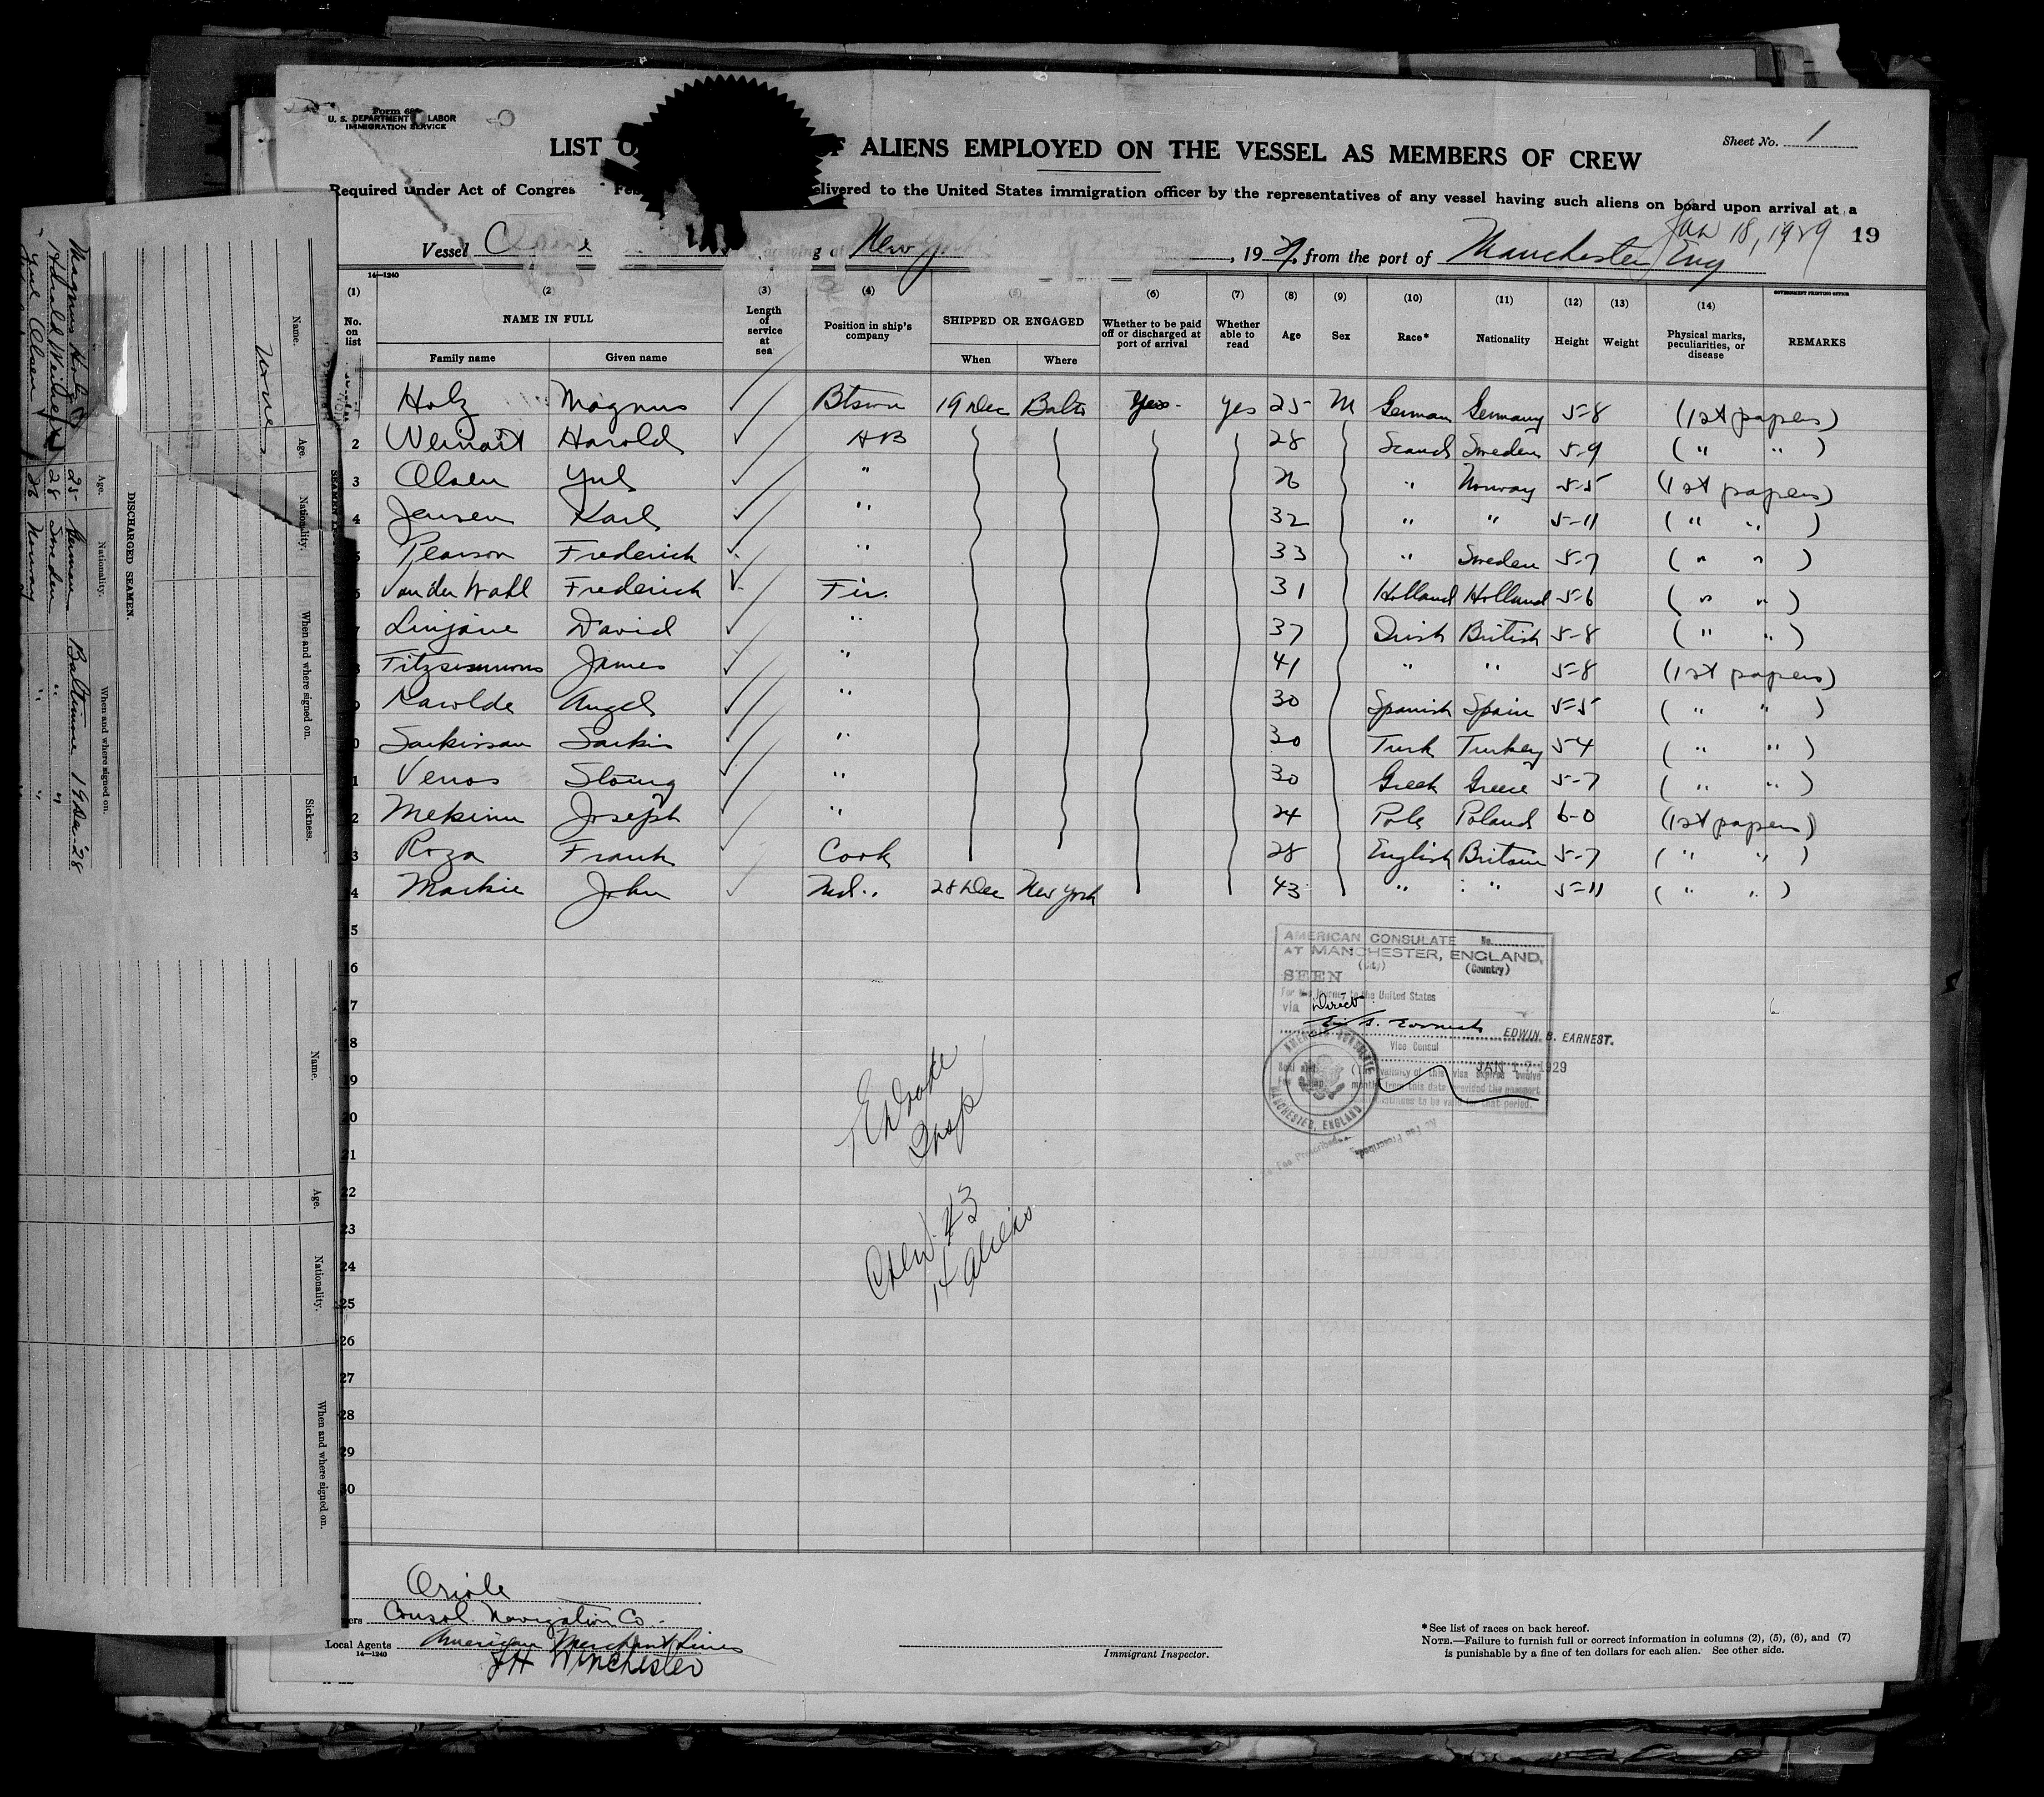 Form 68
U. S. DEPARTMENT LABOR
IMMIGRATION SERVICE
Sheet No. 1
LIST O F ALIENS EMPLOYED ON THE VESSEL AS MEMBERS OF CREW
Required under Act of Congres Feb elivered to the United States immigration officer by the representatives of any vessel having such aliens on board upon arrival at a
Jan 18, 1929 19
Vessel g at New York , 1929, from the port of Manchester Eng
14—1240
GOVERNMENT PRINTING OFFICE
(1) (2) (3) (4) (5) (6) (7) (8) (9) (10) (11) (12) (13) (14)
No. on list NAME IN FULL Length of service at sea Position in ship's company SHIPPED OR ENGAGED Whether to be paid off or discharged at port of arrival Whether able to read Age Sex Race* Nationality Height Weight Physical marks, peculiarities, or disease REMARKS
Family name Given name When Where
1 Holz Magnus ✓ Btswn 19 Dec Balto Yes yes 25 M German Germany 5-8 (1st papers)
2 Harold ✓ AB 28 Scand Sweden 5-9 ( " " )
3 Olsen Yul ✓ " 26 " Norway 5-5 (1st papers)
4 Jensen Karl ✓ " 32 " " 5-11 ( " " )
5 Pearson Frederick ✓ " 33 " Sweden 5-7 ( " " )
6 Van der Wahl Frederick ✓ Fir. 31 Holland Holland 5-6 ( " " )
7 Linjane David ✓ " 37 Irish British 5-8 ( " " )
8 Fitzsimmons James ✓ " 41 " " 5-8 (1st papers)
9 Angel ✓ " 30 Spanish Spain 5-5 ( " " )
0 Sarkissan Sarkis ✓ " 30 Turk Turkey 5-4 ( " " )
1 Venos ✓ " 30 Greek Greece 5-7 ( " " )
2 Joseph ✓ " 24 Pole Poland 6-0 (1st papers)
3 Roza Frank ✓ Cook 28 English Britain 5-7 ( " " )
4 Mackie John ✓ 28 Dec New York 43 " " 5-11 ( " " )
5
16
17
18
19
20
21
22
23
24
25
26
27
28
29
30
AMERICAN CONSULATE No.
AT MANCHESTER, ENGLAND,
(City) (Country)
SEEN
For the journey to the United States
via Direct
EDWIN B. EARNEST.
Vice Consul
JAN 17 1929
AMERICAN CONSULATE
MANCHESTER, ENGLAND
No Fee Prescribed
Insp
Crew 43
14 aliens
Oriole
ers Consol. Navigation Co.
Local Agents American Merchant Lines
14—1240
JH Winchester
Immigrant Inspector.
*See list of races on back hereof.
NOTE.—Failure to furnish full or correct information in columns (2), (5), (6), and (7)
is punishable by a fine of ten dollars for each alien. See other side.
DISCHARGED SEAMEN.
Name. Age. Nationality. When and where signed on.
Magnus Holz 25 German Baltimore 19 Dec 28
28 Sweden " "
Yul Olsen 26 Norway " "
Name. Age. Nationality. When and where signed on. Sickness.
None
Name. Age. Nationality. When and where signed on.